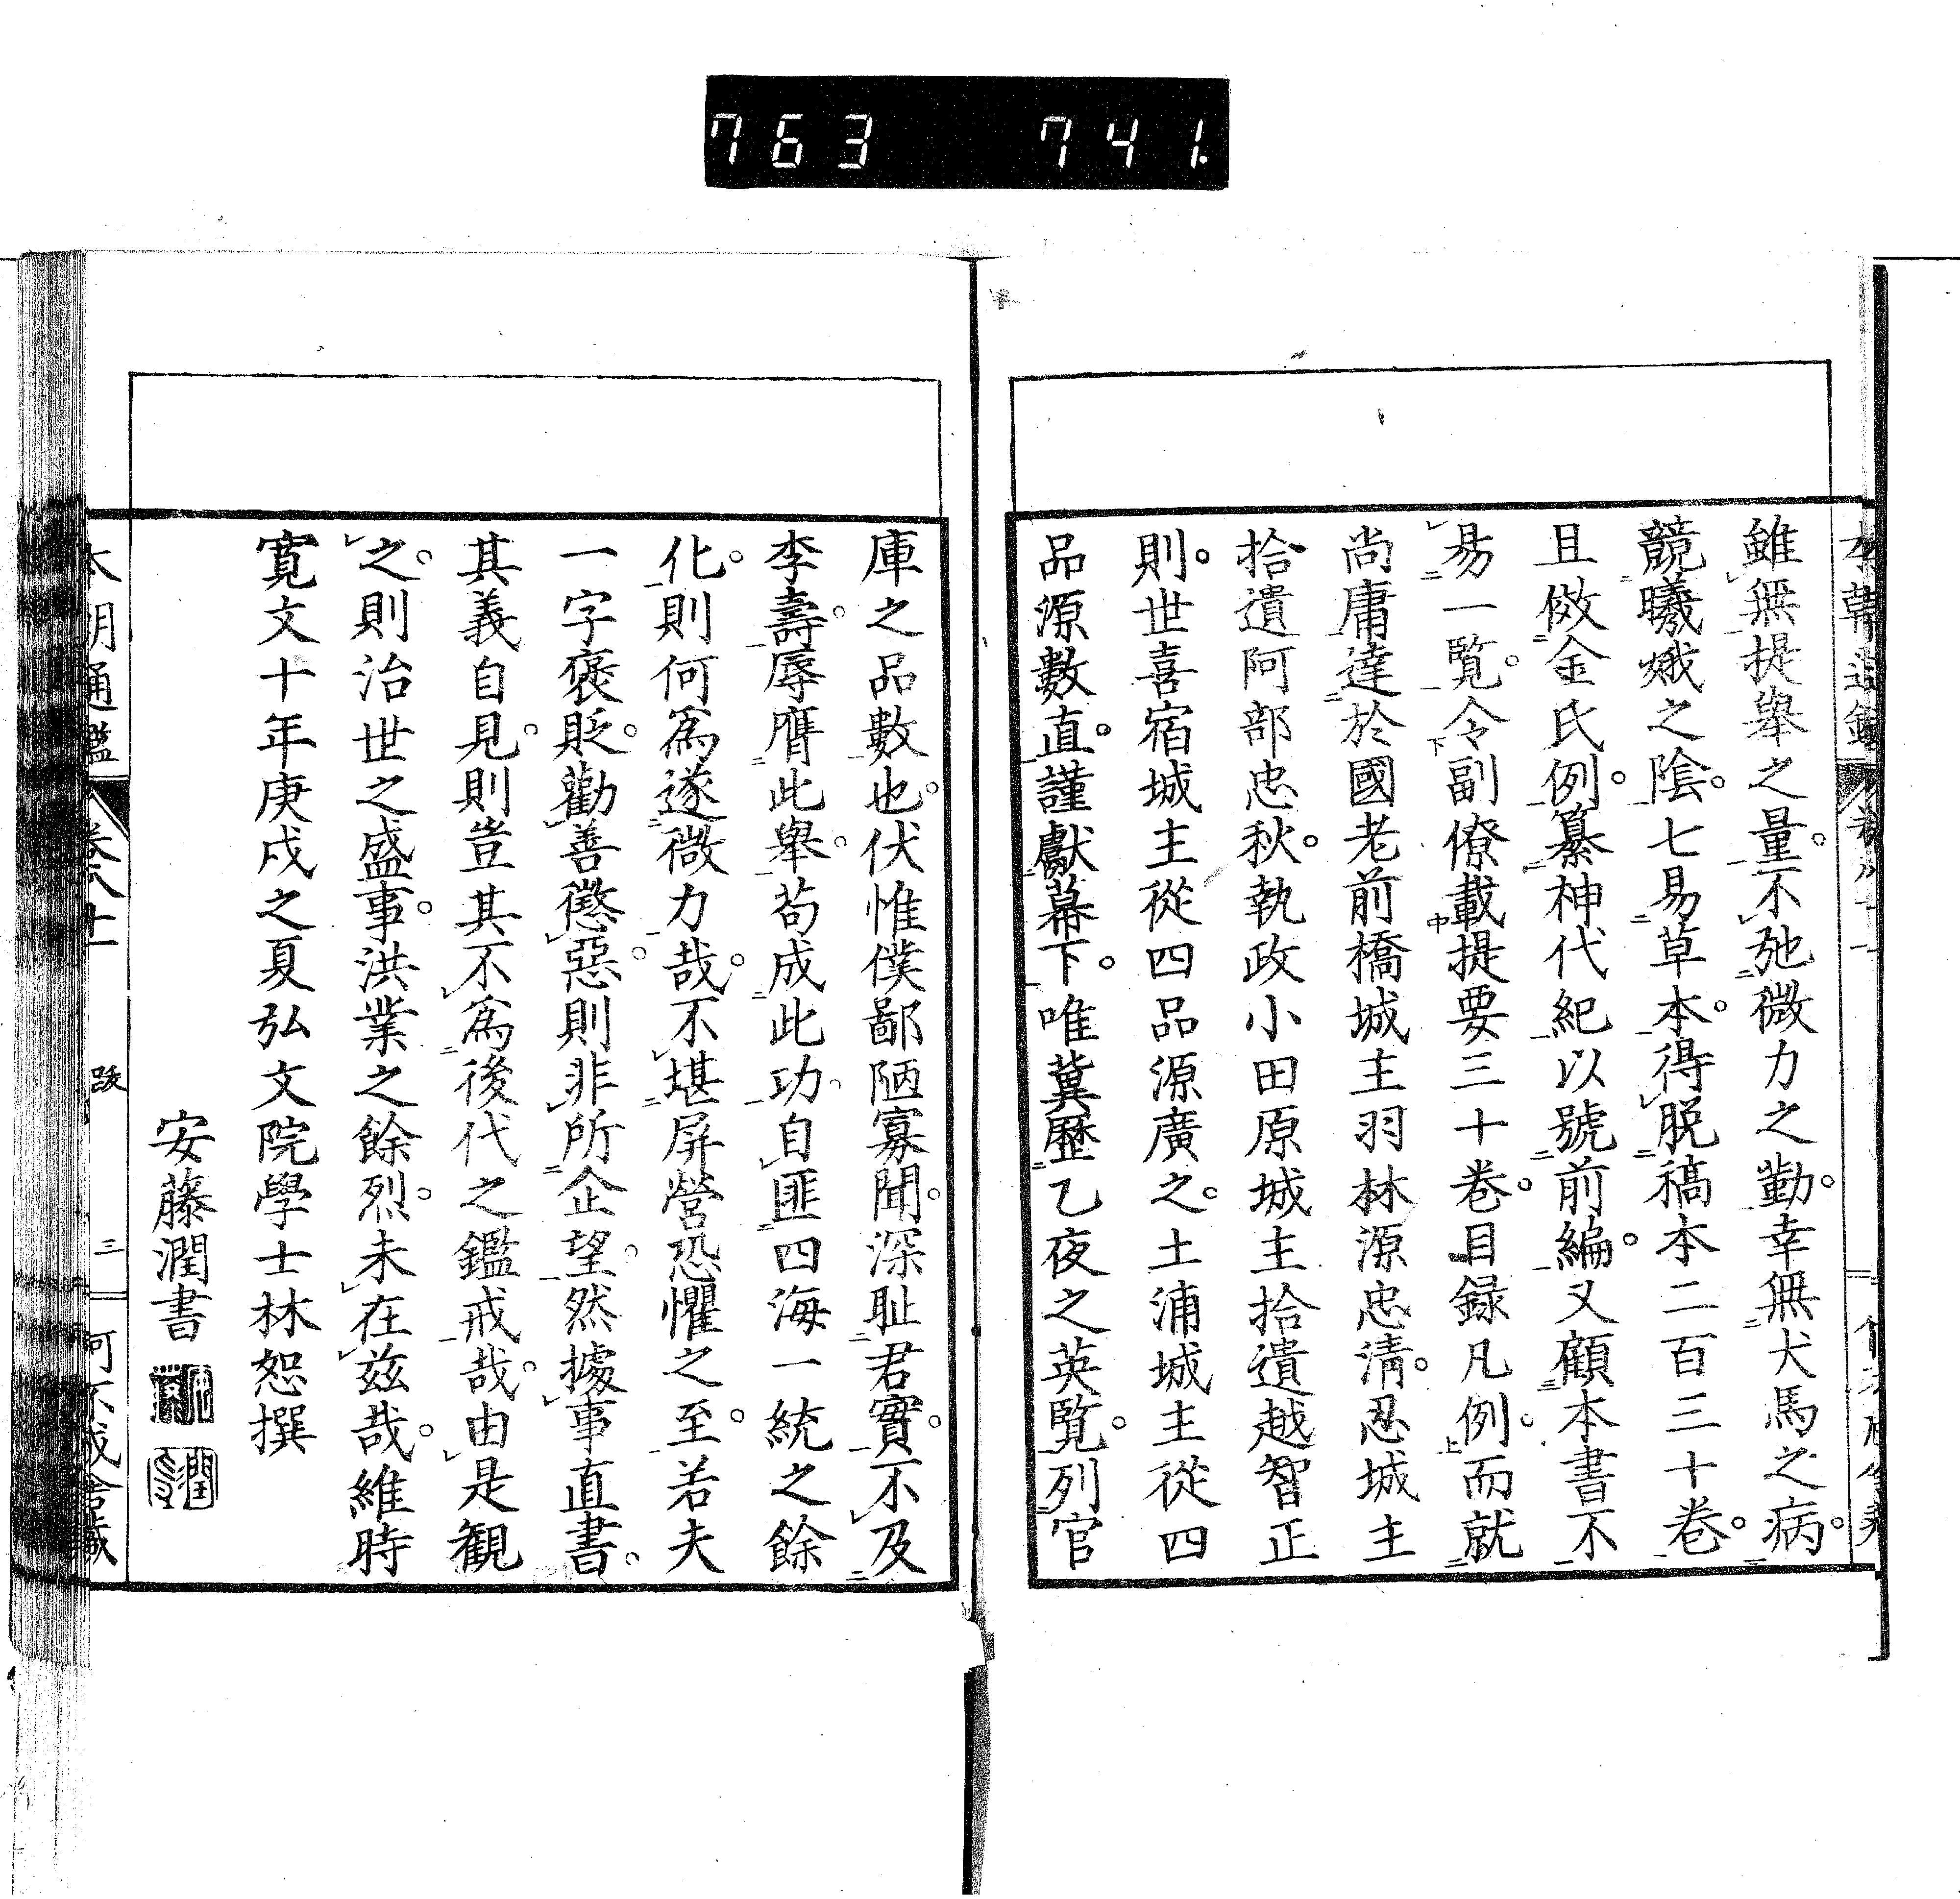 763 741.
雖無提擧之量。不弛微力之勤。幸無犬馬之病。
競曦娥之陰。七易草本。得脱稿本二百三十卷。
且倣金氏例。纂神代紀以號前編。又顧本書不
易一覽。令副僚載提要三十卷。目録凡例。而就
尚庸達於國老前橋城主羽林源忠淸。忍城主
拾遺阿部忠秋。執政小田原城主拾遺越智正
則。世喜宿城主從四品源廣之。土浦城主從四
品源數直。謹獻幕下。唯冀歷乙夜之英覽。列官
庫之品數也。伏惟僕鄙陋寡聞。深耻君實。不及
李壽。辱膺此擧。苟成此功。自匪四海一統之餘
化。則何爲遂微力哉。不堪屏營恐懼之至。若夫
一字褒貶。勸善懲惡。則非所企望。然據事直書。
其義自見。則豈其不爲後代之鑑戒哉。由是観
之。則治世之盛事。洪業之餘烈。未在茲哉。維時
寛文十年庚戌之夏弘文院學士林恕撰
安藤潤書
本朝通鑑 卷八十一 跋 三